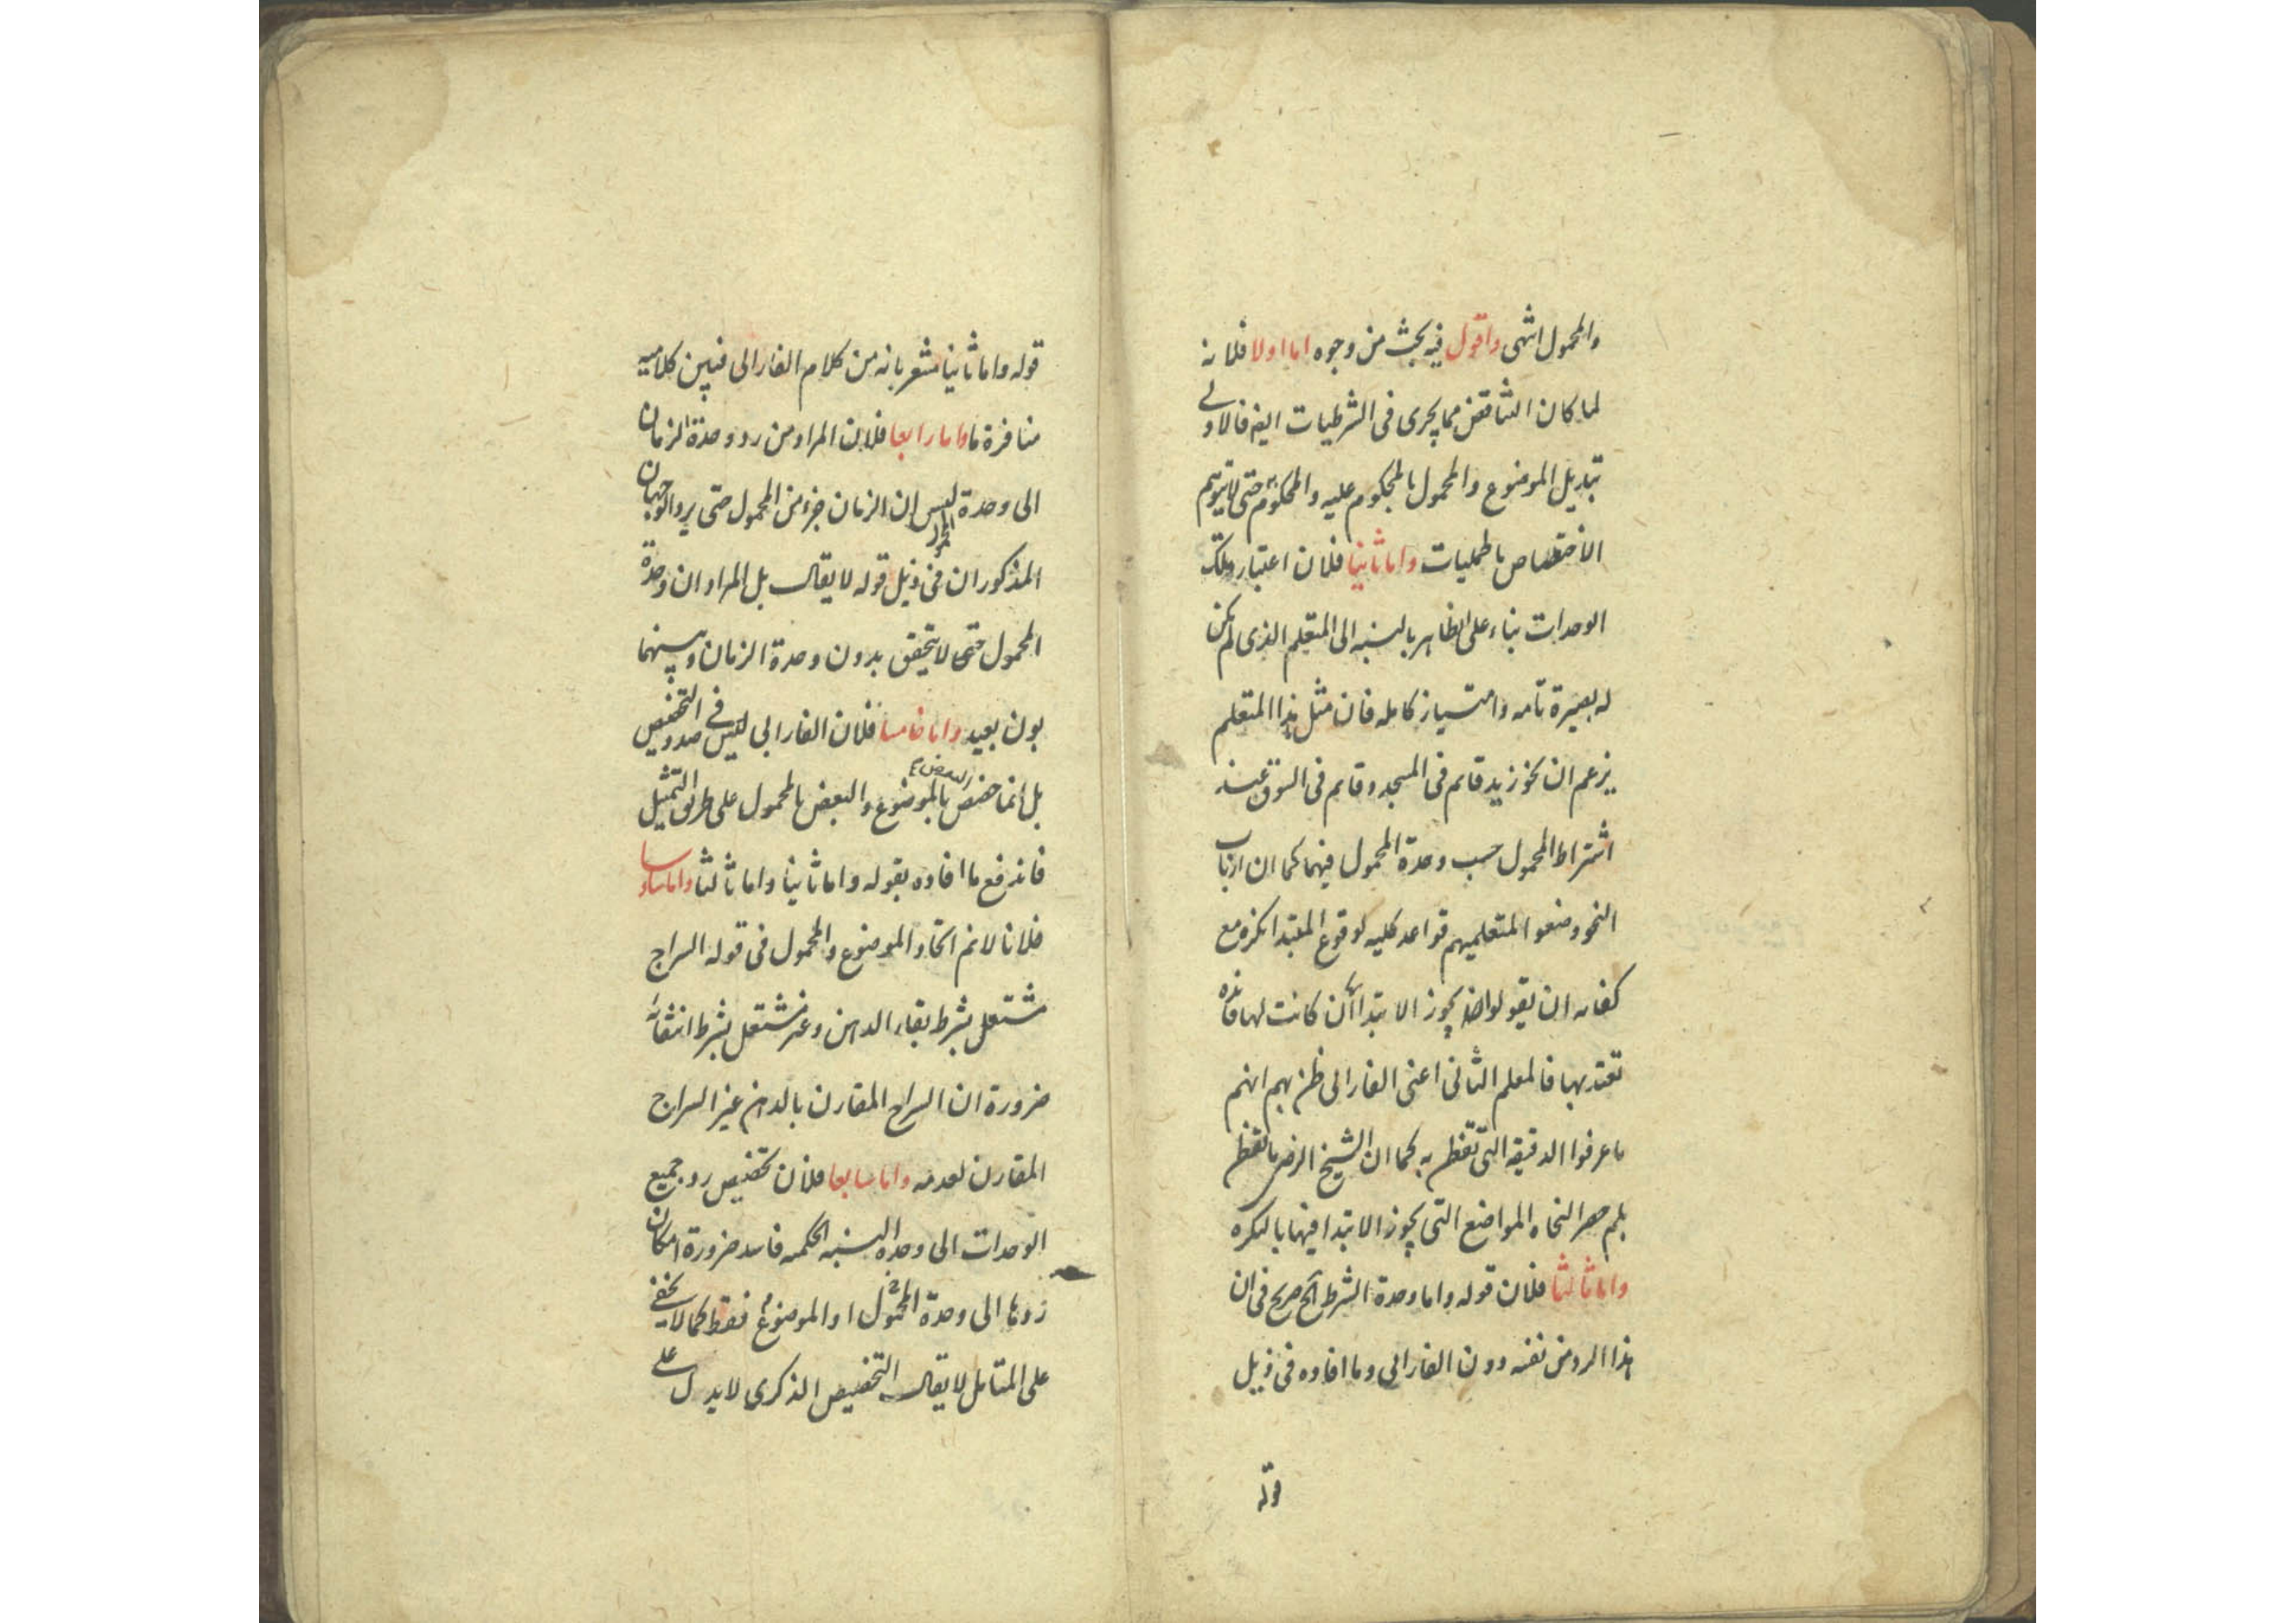 والمحمول انتهى واقول فيه بحث من وجوه اما اولا فلانه
لما كان التناقض مما يجرى فى الشرطيات ايضا فالاولى
تبديل الموضوع والمحمول بالمحكوم عليه والمحكوم به حتى لا يتوهم
الاختصاص بالحمليات واما ثانيا فلان اعتبار تلك
الوحدات بناء على الظاهر بالنسبة الى المتعلم الذى لم يكن
له بصيرة تامه وامتياز كامله فان مثل هذا المتعلم
يزعم ان نحو زيد قائم فى المسجد وقائم فى السوق عند
اشتراط المحمول حسب وحدة المحمول فيهما كما ان ارباب
النحو وضعوا المتعلميهم قواعد كليه لوقوع المبتدا نكرة مع
كفايه ان يقولوا يجوز الابتدا ان كانت لها فائده
تعتد بها فالمعلم الثانى اعنى الفارابى ظن بهم انهم
ما عرفوا الدقيقه التى تفطن به كما ان الشيخ الرضى ما تفطن
بلم حصر النحاه المواضع التى يجوز الابتدا فيها بالنكره
واما ثالثا فلان قوله واما وحدة الشرط الخ صريح فى ان
هذا الرد من نفسه دون الفارابى وما افاده فى ذيل
قوله
قوله واما ثانيا مشعر بانه من كلام الفارابى فبين كلاميه
منافرة ما واما رابعا فلان المراد من رد وحدة الزمان
الى وحدة المحمول ليس ان الزمان جزء من المحمول حتى يرد الوجهان
المذكوران فى ذيل قوله لا يقال بل المراد ان وحدة
المحمول حتى لا يتحقق بدون وحدة الزمان وبينهما
بون بعيد واما خامسا فلان الفارابى ليس فى صدد التخصيص
بل انما خصص البعض بالموضوع والبعض بالمحمول على طريق التمثيل
فاندفع ما افاده بقوله واما ثانيا واما ثالثا واما سادسا
فلانا لانم اتحاد الموضوع والمحمول فى قوله السراج
مشتعل بشرط بقاء الدهن وغير مشتعل بشرط انتفائه
ضرورة ان السراج المقارن بالدهن غير السراج
المقارن لعدمه واما سابعا فلان تخصيص رد جميع
الوحدات الى وحدة النسبه الحكميه فاسد ضرورة امكان
ردها الى وحدة المحمول او الموضوع فقط كما لا يخفى
على المتامل لا يقال التخصيص الذكرى لا يدل على